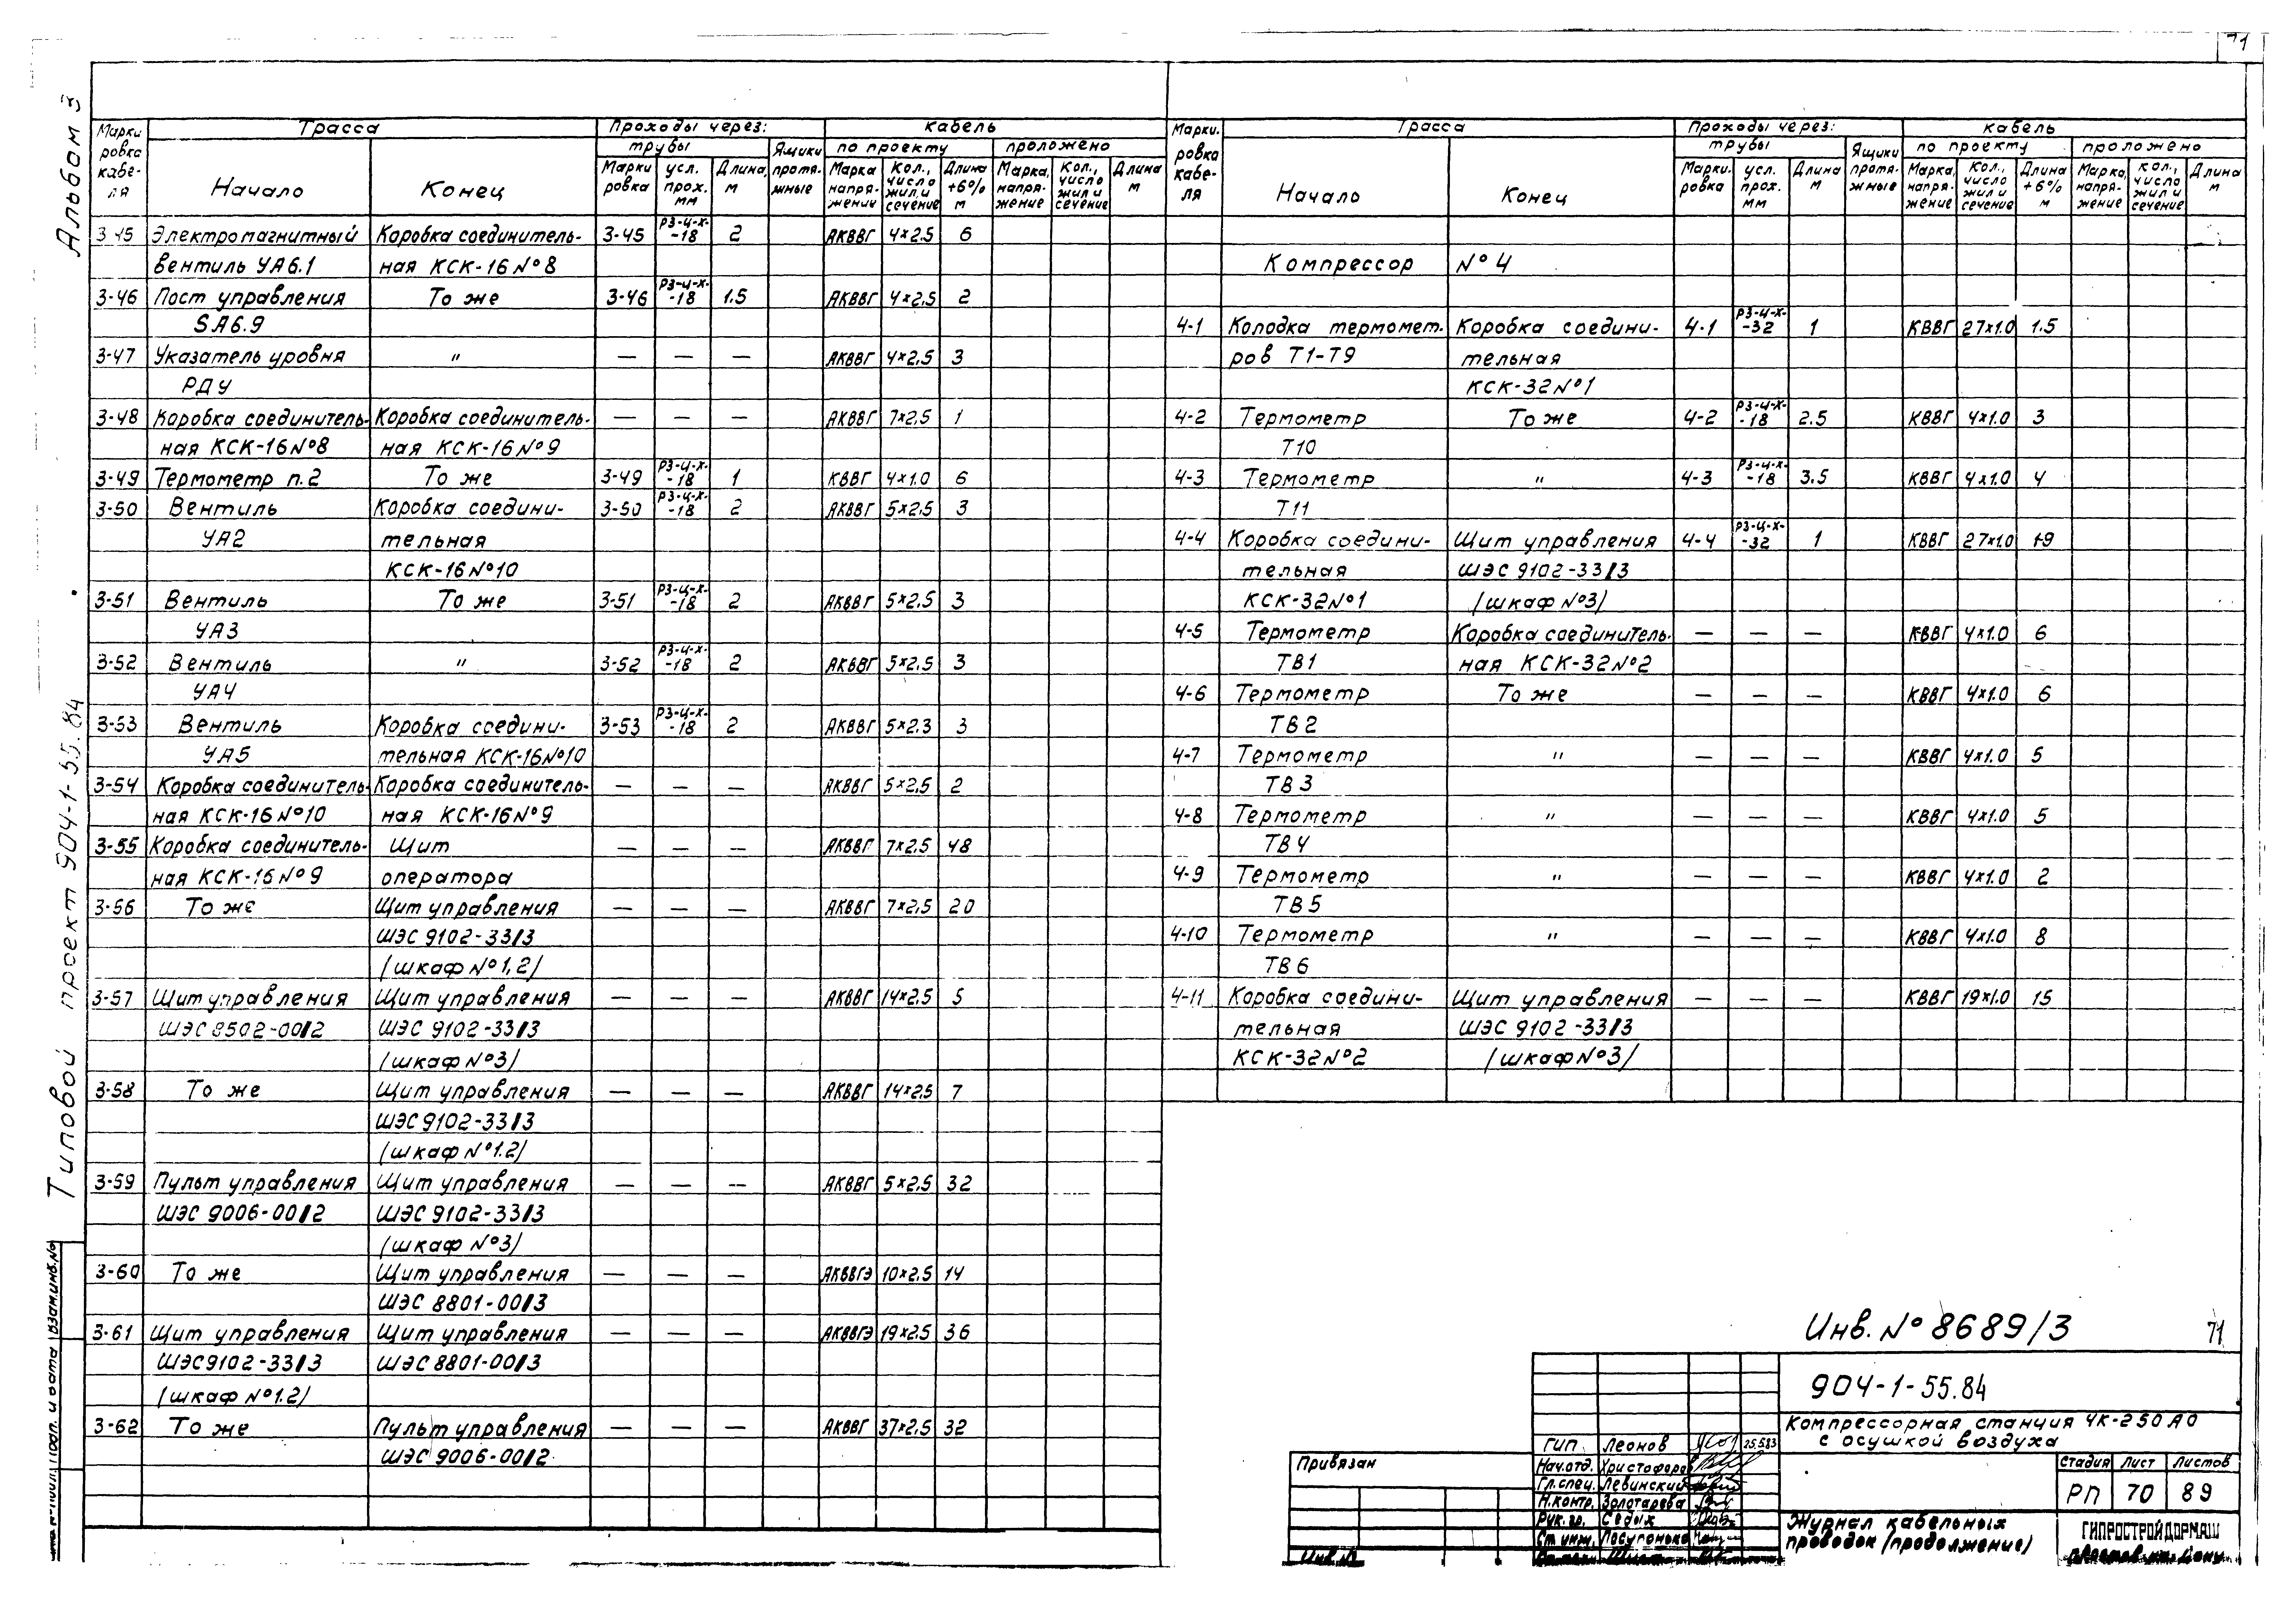 71
Альбом 3
Типовой проект 904-1-55.84
Взам.инв.№
Марки ровка кабе- ля | Трасса | Проходы через: | кабель
трубы | Ящики протя- жные | по проекту | проложено
Начало | Конец | Марки ровка | усл. прох. мм | Длина, м | Марка напря- жение | Кол., число жил и сечение | Длина +6% м | Марка, напря- жение | Кол., число жил и сечение | Длина м
3-45 Электромагнитный Коробка соединитель- 3-45 РЗ-Ц-Х- -18 2 АКВВГ 4×2.5 6
вентиль УА6.1 ная КСК-16№8
3-46 Пост управления То же 3-46 РЗ-Ц-Х- -18 1.5 АКВВГ 4×2.5 2
SA6.9
3-47 Указатель уровня " — — — АКВВГ 4×2.5 3
РДУ
3-48 Коробка соединитель- Коробка соединитель- — — — АКВВГ 7×2.5 1
ная КСК-16№8 ная КСК-16№9
3-49 Термометр п.2 То же 3-49 РЗ-Ц-Х- -18 1 КВВГ 4×1.0 6
3-50 Вентиль Коробка соедини- 3-50 РЗ-Ц-Х- -18 2 АКВВГ 5×2.5 3
УА2 тельная
КСК-16№10
3-51 Вентиль То же 3-51 РЗ-Ц-Х- -18 2 АКВВГ 5×2.5 3
УА3
3-52 Вентиль " 3-52 РЗ-Ц-Х- -18 2 АКВВГ 5×2.5 3
УА4
3-53 Вентиль Коробка соедини- 3-53 РЗ-Ц-Х- -18 2 АКВВГ 5×2.3 3
УА5 тельная КСК-16№10
3-54 Коробка соединитель- Коробка соединитель- — — — АКВВГ 5×2.5 2
ная КСК-16№10 ная КСК-16№9
3-55 Коробка соединитель- Щит — — — АКВВГ 7×2.5 48
ная КСК-16№9 оператора
3-56 То же Щит управления — — — АКВВГ 7×2.5 20
ШЭС 9102-33/3
/шкаф №1,2/
3-57 Щит управления Щит управления — — — АКВВГ 14×2.5 5
ШЭС 8502-00/2 ШЭС 9102-33/3
/шкаф №3/
3-58 То же Щит управления — — — АКВВГ 14×2.5 7
ШЭС 9102-33/3
/шкаф №1.2/
3-59 Пульт управления Щит управления — — — АКВВГ 5×2.5 32
ШЭС 9006-00/2 ШЭС 9102-33/3
/шкаф №3/
3-60 То же Щит управления — — — АКВВГЭ 10×2.5 14
ШЭС 8801-00/3
3-61 Щит управления Щит управления — — — АКВВГЭ 19×2.5 36
ШЭС 9102-33/3 ШЭС 8801-00/3
/шкаф №1.2/
3-62 То же Пульт управления — — — АКВВГ 37×2.5 32
ШЭС 9006-00/2
Марки. ровка кабе- ля | Трасса | Проходы через: | кабель
трубы | Ящики протя- жные | по проекту | проложено
Начало | Конец | Марки. ровка | усл. прох. мм | Длина м | Марка, напря- жение | Кол., число жил и сечение | Длина +6% м | Марка, напря- жение | кол., число жил и сечение | Длина м
Компрессор №4
4-1 Колодка термомет. Коробка соедини- 4-1 РЗ-Ц-Х- -32 1 КВВГ 27×1.0 1.5
ров Т1-Т9 тельная
КСК-32№1
4-2 Термометр То же 4-2 РЗ-Ц-Х- -18 2.5 КВВГ 4×1.0 3
Т10
4-3 Термометр " 4-3 РЗ-Ц-Х- -18 3.5 КВВГ 4×1.0 4
Т11
4-4 Коробка соедини- Щит управления 4-4 РЗ-Ц-Х- -32 1 КВВГ 27×1.0 19
тельная ШЭС 9102-33/3
КСК-32№1 /шкаф №3/
4-5 Термометр Коробка соединитель- — — — КВВГ 4×1.0 6
ТВ1 ная КСК-32№2
4-6 Термометр То же — — — КВВГ 4×1.0 6
ТВ2
4-7 Термометр " — — — КВВГ 4×1.0 5
ТВ3
4-8 Термометр " — — — КВВГ 4×1.0 5
ТВ4
4-9 Термометр " — — — КВВГ 4×1.0 2
ТВ5
4-10 Термометр " — — — КВВГ 4×1.0 8
ТВ6
4-11 Коробка соедини- Щит управления — — — КВВГ 19×1.0 15
тельная ШЭС 9102-33/3
КСК-32№2 /шкаф №3/
Инв. № 8689/3 71
904-1-55.84
Компрессорная станция ЧК-250 А0
с осушкой воздуха
ГИП Леонов 25.5.83
Нач.отд. Христофоров
Гл.спец. Левинский
Н.контр. Золотарева
Рук.гр. Седых
Ст.инж.
Привязан
Инв.№
Стадия Лист Листов
РП 70 89
Журнал кабельных
проводок /продолжение/
ГИПРОСТРОЙДОРМАШ